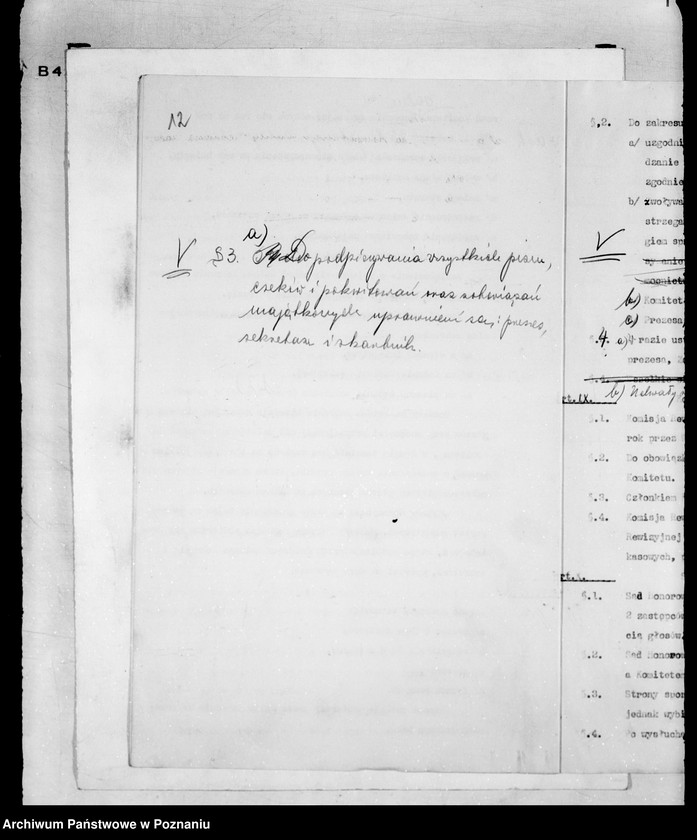 B4
12
a)
V §3. Do podpisywania wszystkich pism,
czeków i pokwitowań oraz zobowiązań
majątkowych uprawnieni są: prezes,
sekretarz i skarbnik.
§.2. Do zakresu
a/ uzgodni
dzanie
zgodnie
b/ zwoływa
strzega
V giem sp
b) Komitet
c) Prezesa,
4. a) W razie us
prezesa,
b) Uchwały
§.1. Komisja Rew
rok przez
§.2. Do obowiąz
Komitetu.
§.3. Członkiem
§.4. Komisja Rew
Rewizyjnej
kasowych,
§.1. Sąd Honorow
2 zastępców
cią głosów
§.2. Sąd Honorow
a Komitetem
§.3. Strony spor
jednak wybi
§.4. Po wysłucha
Archiwum Państwowe w Poznaniu